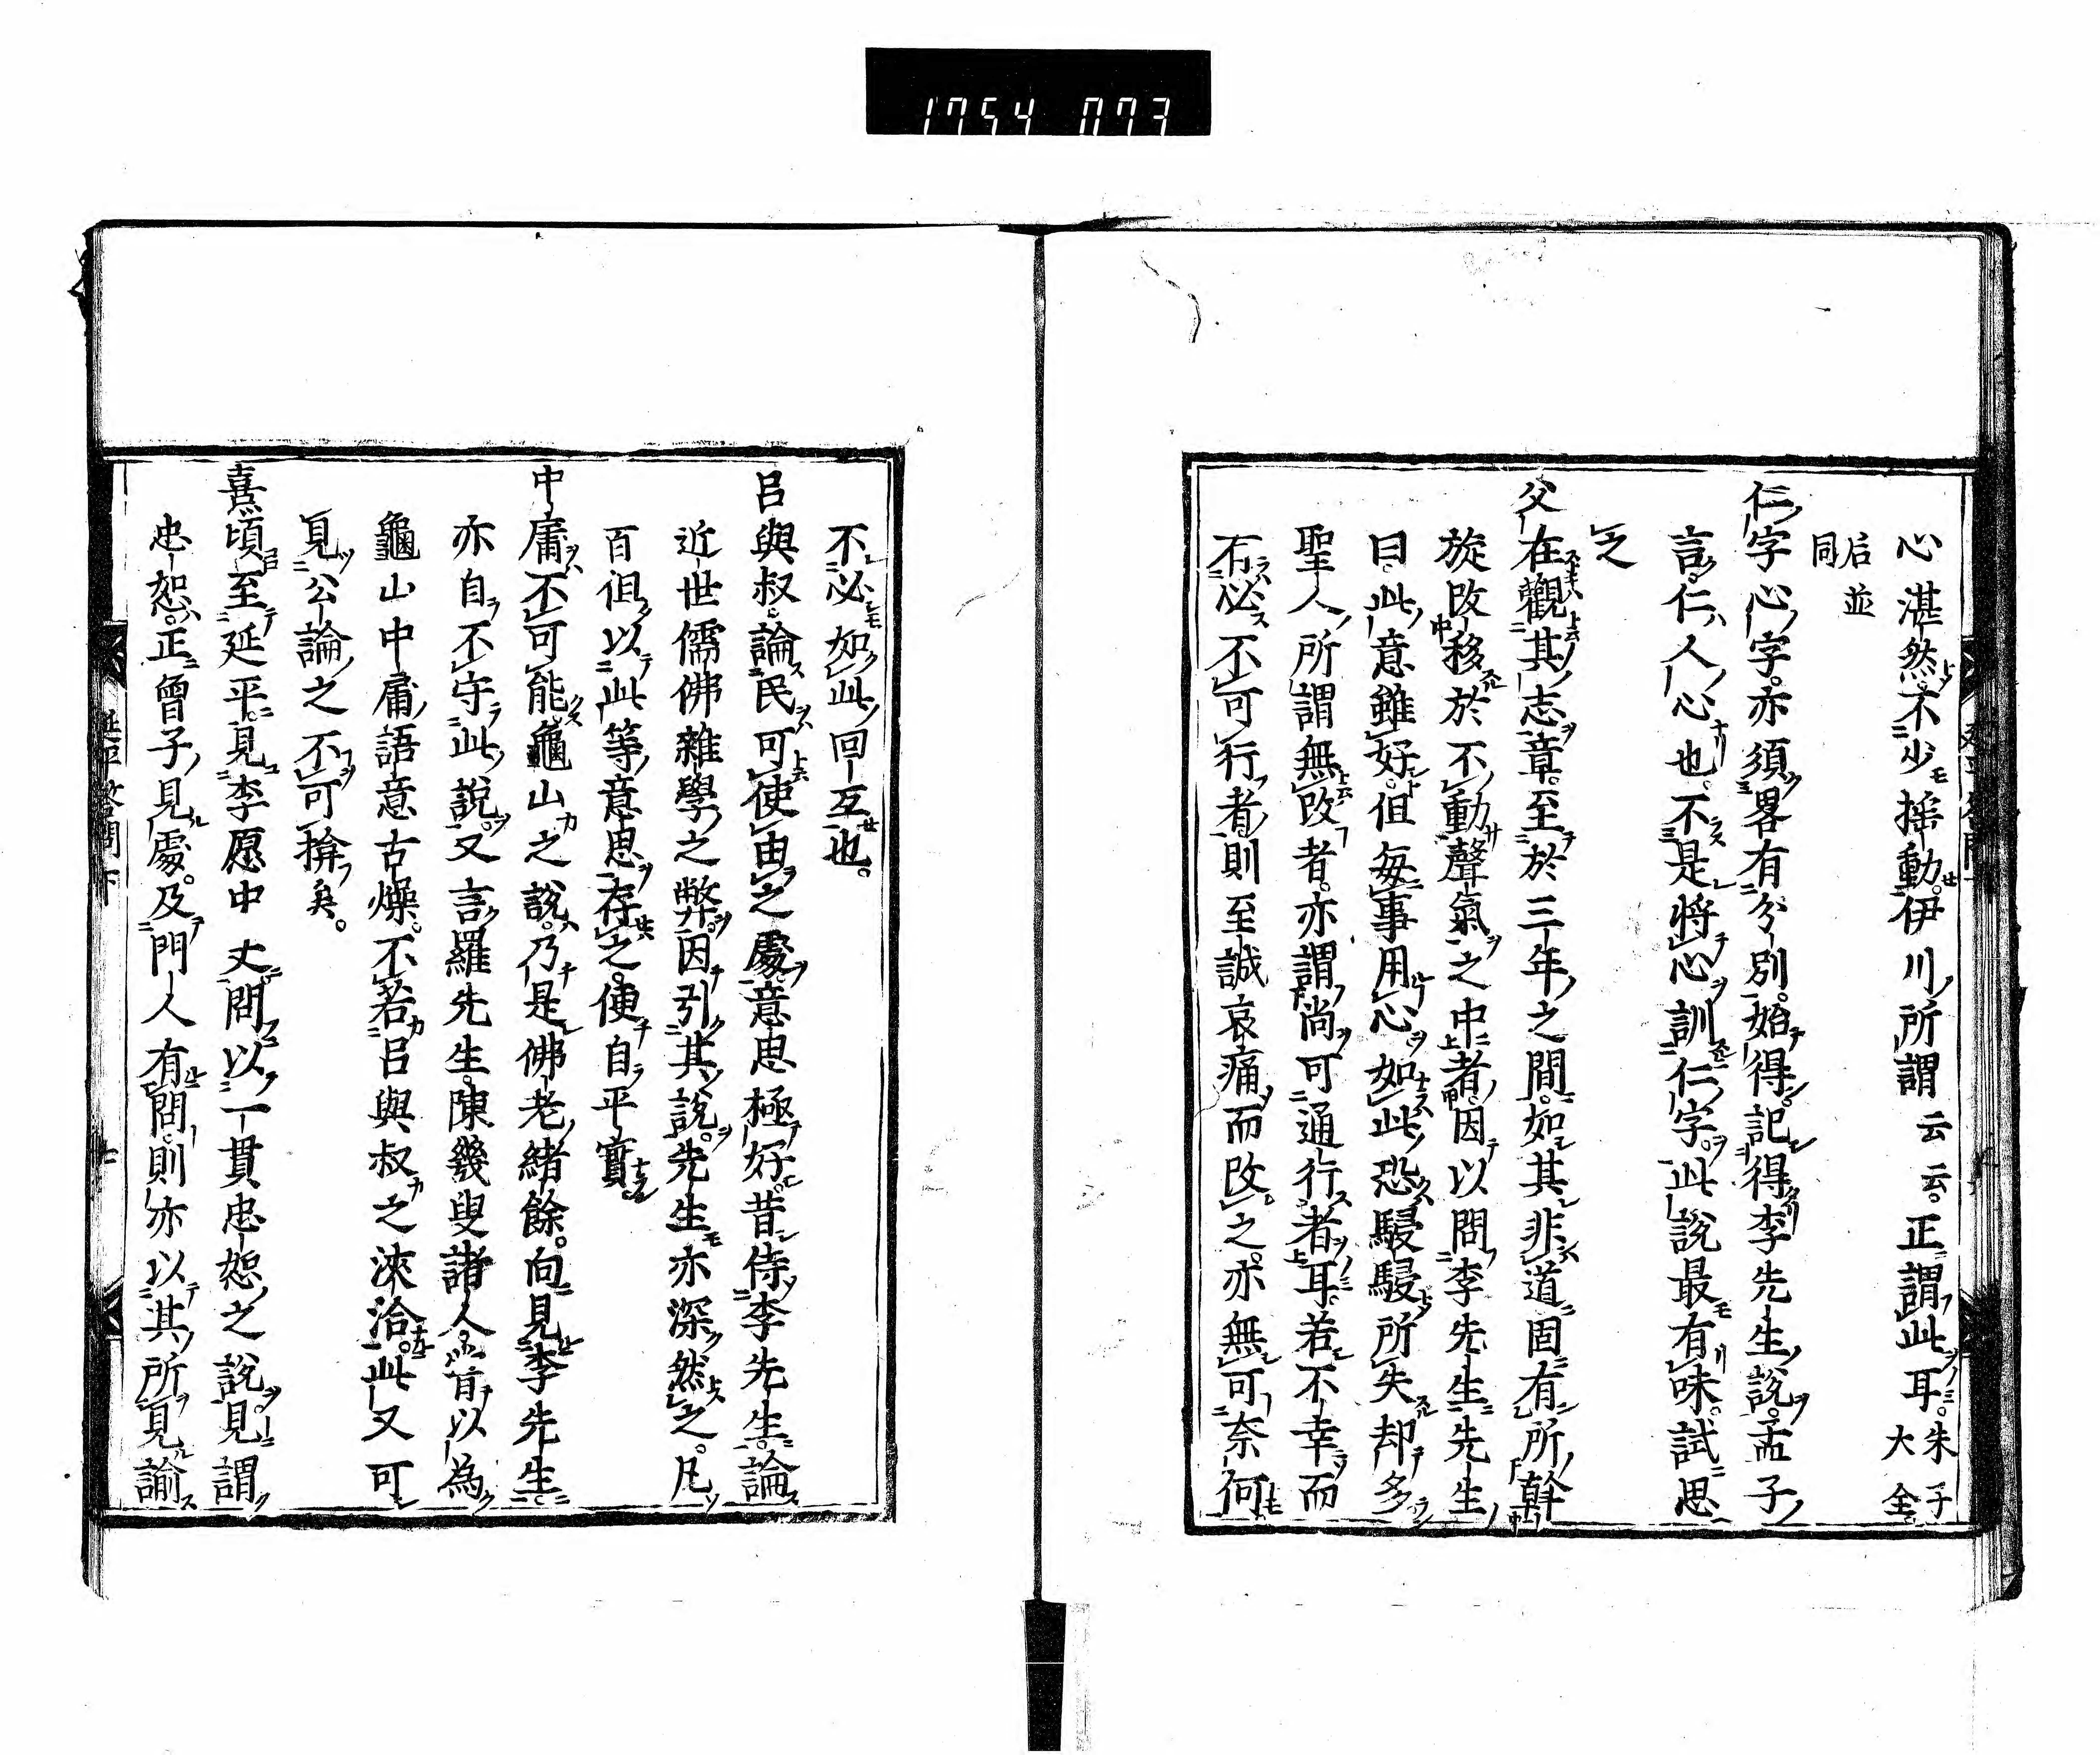 1754 073
心湛然不少搖動。伊川所謂云云。正謂此耳。朱子大全。
后並同
仁字心字。亦須畧有分別。始得。記得李先生說。孟子
言。仁人心也。不是將心訓仁字。此說最有味。試思
之
父在觀其志章。至於三年之間。如其非道固有所幹
旋改移於不動聲氣之中者。因以問李先生先生
曰。此意雖好。但每事用心如此恐駸駸所失却多
聖人所謂無改者。亦謂尚可通行者耳。若不幸而
不必不可行者則至誠哀痛而改之。亦無可奈何
不必如此回互也。
呂與叔論民可使由之處意思極好。昔侍李先生。論
近世儒佛雜學之弊。因引其說。先生亦深然之。凡
百但以此等意思存之。便自平實
中庸不可能龜山之說。乃是佛老緒餘。向見李先生
亦自不守此說。又言羅先生。陳幾叟諸人嘗以為
龜山中庸語意古燥。不若呂與叔之浹洽。此又可
見公論之不可揜矣。
熹頃至延平。見李愿中丈問以一貫忠恕之說。見謂
忠恕。正曾子見處。及門人有問。則亦以其所見諭